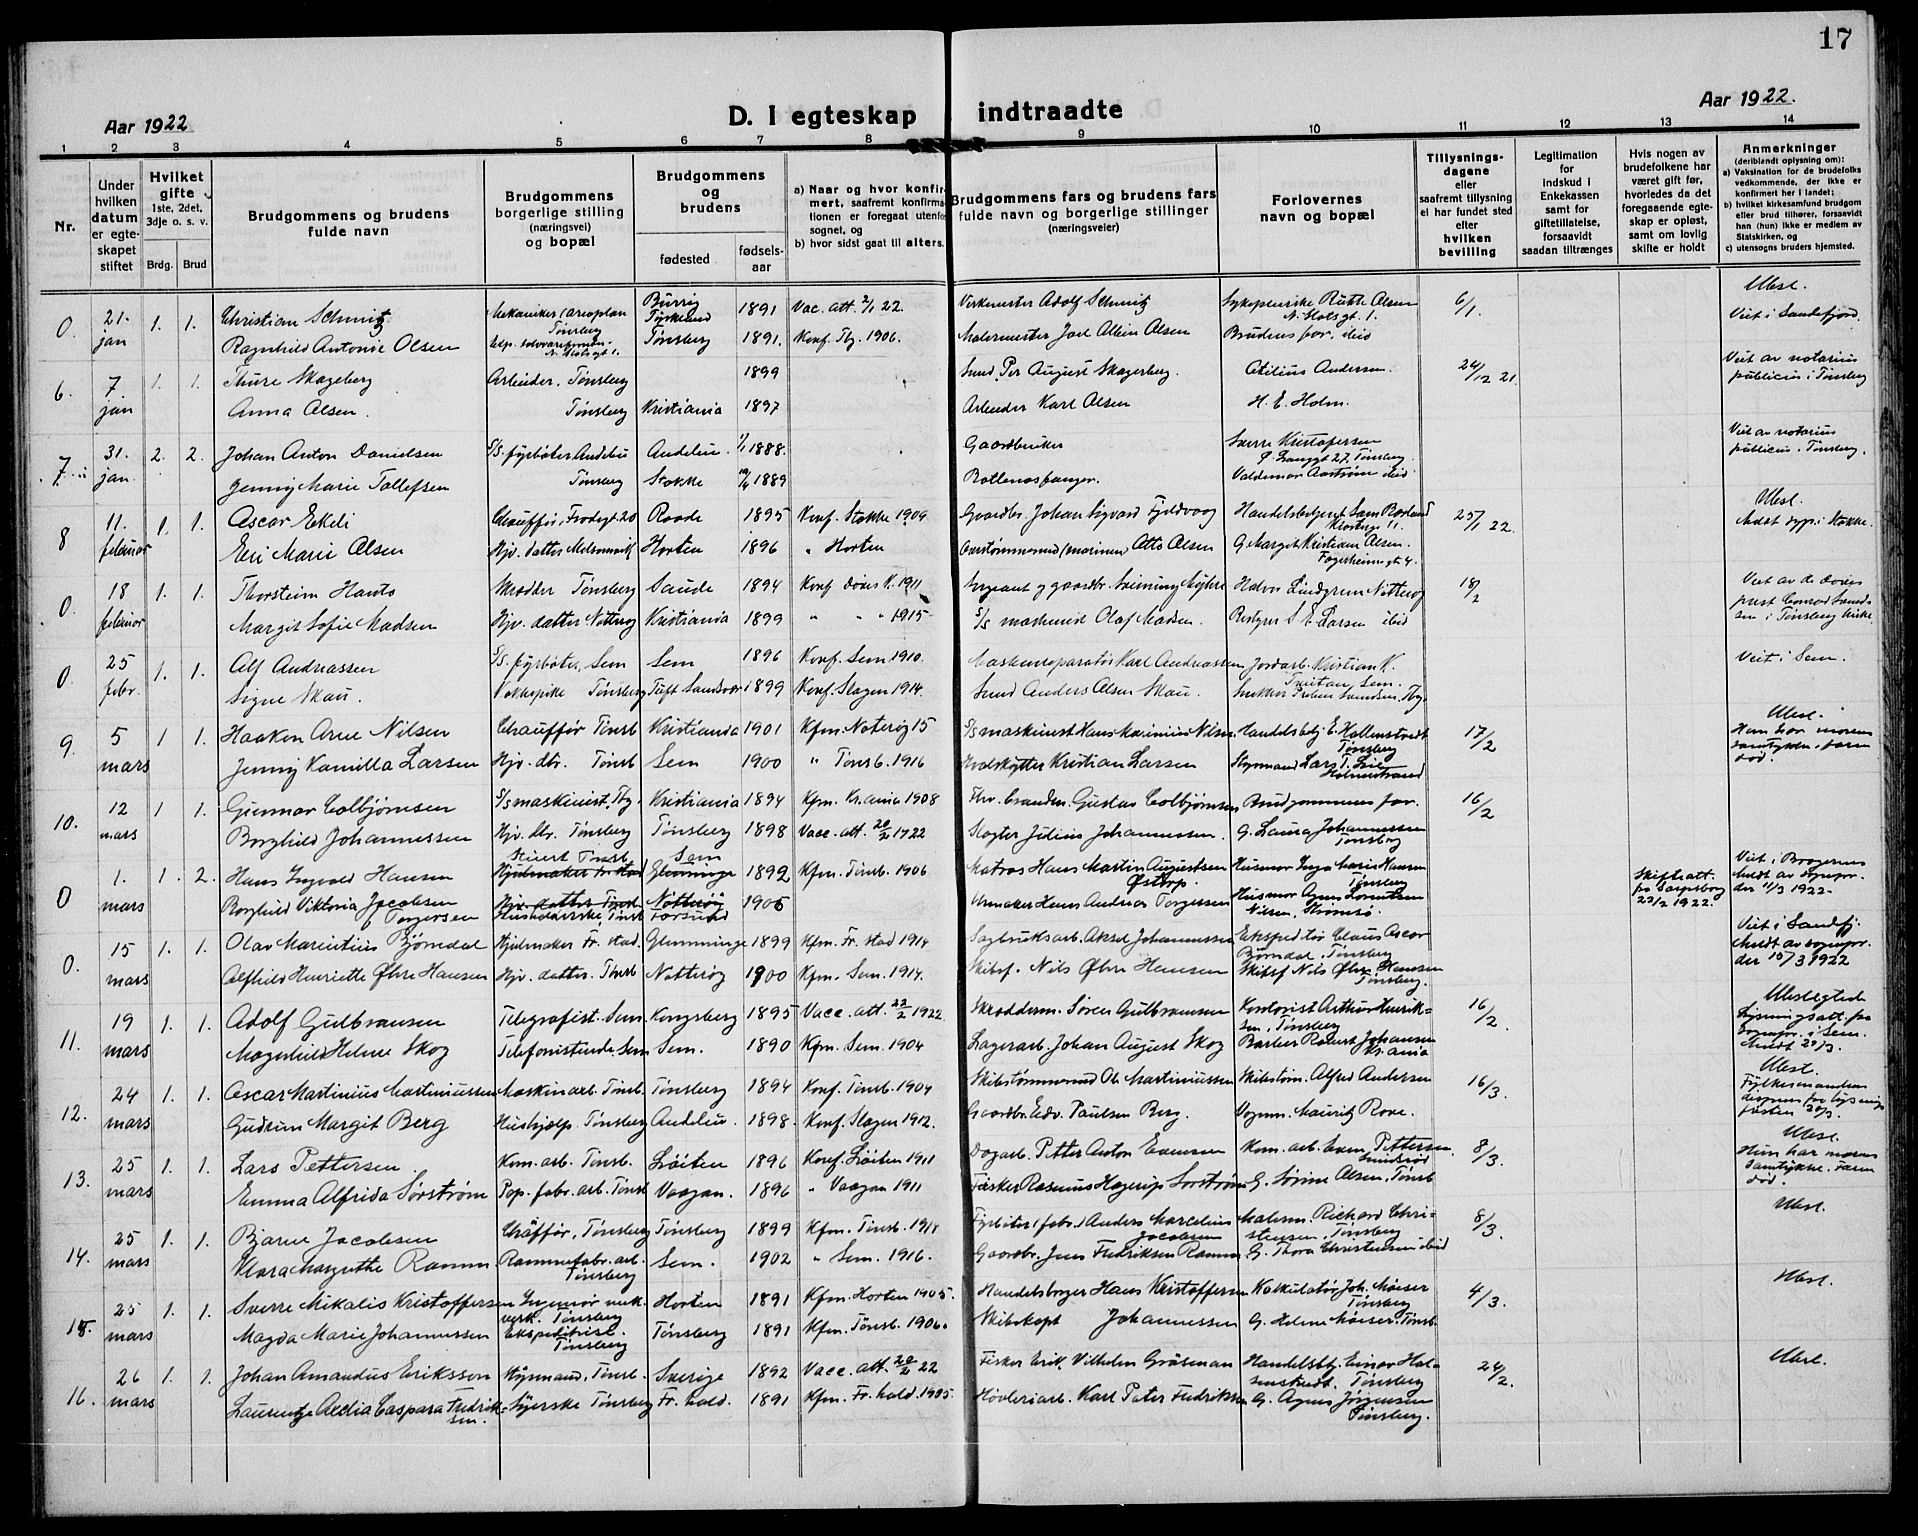 17
Aar 1922
D. I egteskap indtraadte
Aar 1922.
1 2 3 4 5 6 7 8 9 10 11 12 13 14
Nr.
Under hvilken datum er egteskapet stiftet
Hvilket gifte 1ste, 2det, 3dje o. s. v.
Brdg. Brud
Brudgommens og brudens fulde navn
Brudgommens borgerlige stilling (næringsvei) og bopæl
Brudgommens og brudens
fødested
fødselsaar
a) Naar og hvor konfirmert, saafremt konfirmationen er foregaat utenfor sognet, og
b) hvor sidst gaat til alters.
Brudgommens fars og brudens fars fulde navn og borgerlige stillinger (næringsveier)
Forlovernes navn og bopæl
Tillysningsdagene eller saafremt tillysning ei har fundet sted efter hvilken bevilling
Legitimation for indskud i Enkekassen samt for giftetillatelse, forsaavidt saadan tiltrænges
Hvis nogen av brudefolkene har været gift før, hvorledes da det foregaaende egteskap er opløst, samt om lovlig skifte er holdt
Anmerkninger (deriblandt oplysning om): a) Vaksination for de brudefolks vedkommende, der ikke er konfirmert her i landet; b) hvilket kirkesamfund brudgom eller brud tilhører, forsaavidt han (hun) ikke er medlem av Statskirken, og c) utensogns bruders hjemsted.
0 21. jan 1. 1. Christian Schmitz Tønsberg 1891 Vac. att. 2/1 22. Verkmester Adolf Schmitz Sykepleierske Ruth Olsen N. Slotsgt 1. 6/1. Ubesl. Viet i Sandefjord.
Ragnhild Antonie Olsen Tønsberg 1891. Konf. Tbg. 1906. Malermester Joel Albin Olsen Brudens far, ibid
6. 7. jan 1. 1. Thure Skageberg Arbeider, Tønsberg 1899 Smed Per August Skagerberg. Otilius Andersen 24/12 21. Viet av notarius publicus i Tønsberg
Anna Olsen. Tønsberg Kristiania 1897 Arbeider Karl Olsen H. E. Holm.
7. 31. jan. 2. 2. Johan Anton Danielsen S/S. fyrbøter Andebu Andebu 1/1 1888. Gaardbruker Sverre Kristofersen Ø. Langgt 27, Tønsberg. Viet av notarius publicus i Tønsberg.
Jenny Marie Tollefsen Tønsberg Stokke 1889 Rottenosfanger. Valdemar Aastrøm ibid
8 11. februar 1. 1. Oscar Ekeli Chauffør, Frodegt 20 Raade 1895 Konf. Stokke 1909 Gaardbr. Johan Sigvard Fjeldvaag Handelsbetjent 25/1 22. Ubesl.
Eli Marie Olsen Hjv. datter Horten 1896 " Horten Otto Olsen G. Margit Kristiane Olsen. Fagerheimsgt 4.
0. 18 februar 1. 1. Thorstein Hauto Skrædder Tønsberg Saude 1894 Konf. Døves K. 1911 Halvor Lindgren Nøtterøy 18/2 Viet av de døves prest Conrad Svendsen i Tønsberg kirke.
Margit Sofie Madsen Hjv. datter Nøtterøy Kristiania 1899 " " " 1915 S/S maskinist Olaf Madsen. Restyrer S. E. Larsen ibid
0. 25 febr. 1. 1. Alf Andreassen S/S. fyrbøter, Sem Sem 1896 Konf. Sem 1910. Karl Andreassen Jordarb. Kristian K. Sem. Viet i Sem.
Signe Skau. Kokkepike Tønsberg 1899 Konf. Slagen 1914. Smed Anders Olsen Skau.
9. 5 mars 1 1. Haakon Arne Nilsen Chauffør Tønsb Kristiania 1901 Kfm. Nøterøy 15 S/S maskinist Hans Nilsen Handelsbetj. E. Hallenstvedt Tønsberg 17/2 Ubesl. Ham har morens samtykke, faren død.
Jenny Kamilla Larsen Hjv. dtr. Tønsb Sem 1900 " Tønsb. 1916 Hvalskytter Kristian Larsen Styrmand Lars T. Lie Holmestrand
10. 12 mars 1 1. Gunnar Colbjørnsen S/S maskinist, Tbg. Kristiania 1894 Kfm. Kr.ania 1908 Gustav Colbjørnsen Brudgommens far. 16/2
Borghild Johannessen Hjv. dtr. Tønsberg Tønsberg 1898 Vacc. att. 20/2 1922 Slagter Julius Johannessen. G. Laura Johannessen Tønsberg
0 1. mars 1. 2. Hans Ingvald Hansen Sem 1892 Kfm. Tønsb. 1906 Matros Hans Martin Augustsen Østtorp. Husmor Inga Marie Hansen Tønsberg Skifteatt. fra Sarpsborg 22/2 1922. Viet i Brogerens Meldt av sognepr. der 11/3 1922.
Borghild Viktoria Jacobsen Torgersen Husholderske Tønsb 1905 Urmaker Hans Andreas Torgersen Husmor Agnes Lorentsen Nilsen, Strømsø.
0. 15 mars 1. 1. Olav Marentius Bjørndal Hjulmaker Fr. stad. Glemminge 1899 Kfm. Fr. stad 1914 Sagbruksarb. Aksel Johannessen Ekspeditør Claus Oscar Bjørndal, Tønsberg Viet i Sandefj. Meldt av sognepr. der 18/3 1922
Alfhild Henriette Øhre Hansen Hjv. datter. Tønsb Nøtterøy 1900 Kfm. Sem. 1914. Skibsf. Nils Øhre Hansen Skibsf Nils Øhre Hansen Tønsberg.
11. 19 mars 1. 1. Adolf Gulbransen Telegrafist. Sem. Kongsberg 1895 Vacc. att. 22/2 1922 Skrædderm. Søren Gulbransen Kontorist Arthur Henriksen, Tønsberg 16/2 Ubeslegtede Lysningsatt. fra sognepr. i Sem.
Magnhild Helene Skog Telefonistinde Sem Sem. 1890 Kfm. Sem. 1904 Lagerarb. Johan August Skog Barber Robert Johansen Kr.ania
12. 24 mars 1. 1. Oscar Martinius Martiniussen Maskinarb. Tønsb. Tønsberg 1894 Konf. Tønsb. 1904 Skibstømmermd Ole Martiniussen Skibstøm. Alfred Andersen 16/3. Ubesl.
Gudrun Margit Berg Hushjælp. Tønsberg Andebu. 1898. Konf. Slagen 1912. Gaardbr. Edv. Paulsen Berg. Vognm. Mauritz Rove.
13. 25 mars 1. 1. Lars Pettersen. Kom. arb. Tønsb. Løiten 1896 Konf. Løiten 1911 Dagarb. Petter Anton Evensen Kom. arb. Even Pettersen 8/3. Ubesl. Hun har morens samtykke. Faren død.
Emma Alfrida Sørstrøm Pap. fabr. arb. Tønsb Vaagan. 1896 " Vaagan 1911 Fisker Rasmus Hagerup Sørstrøm G. Sørine Olsen, Tønsb
14. 25 mars 1. 1. Bjarne Jacobsen Chaffør, Tønsberg Tønsberg 1899 Kfm. Tønsb. 1918 Anders Marcelius Jacobsen Malerm. Richard Christensen, Tønsberg 8/3. Ubesl.
Klara Margrethe Ramm Rammefabr. arb. Tønsberg Sem. 1902 " Sem. 1916. Gaardbr. Jens Fredriksen Ramm G. Thora Christensen ibid
15. 25 mars 1. 1. Sverre Mikalis Kristoffersen Ingeniør mek. verk. Tønsberg Horten 1891 Kfm. Horten 1905. Handelsborger Hans Kristoffersen Kalkulatør Joh. Meiser Tønsberg 4/3. Ubesl.
Magda Marie Johannessen Ekspeditrise. Tønsberg Tønsberg 1891 Kfm. Tønsb. 1906. Skibskapt Johannessen G. Helene Meiser. Tønsb.
16. 26 mars 1. 1. Johan Amandus Eriksson Styrmand, Tønsb. Sverige 1892 Vacc. att. 20/2 22 Fisker Erik Vilhelm Gräsman Handelsbtj. Einar Halsenstvedt. Tønsberg 24/2. Ubesl.
Laurentze Aletta Caspara Fredriksen. Syerske Tønsberg Fr. hald. 1891 Kfm. Fr. hald. 1905. Høvleriarb. Karl Peter Fredriksen G. Agnes Jørgensen Tønsberg.